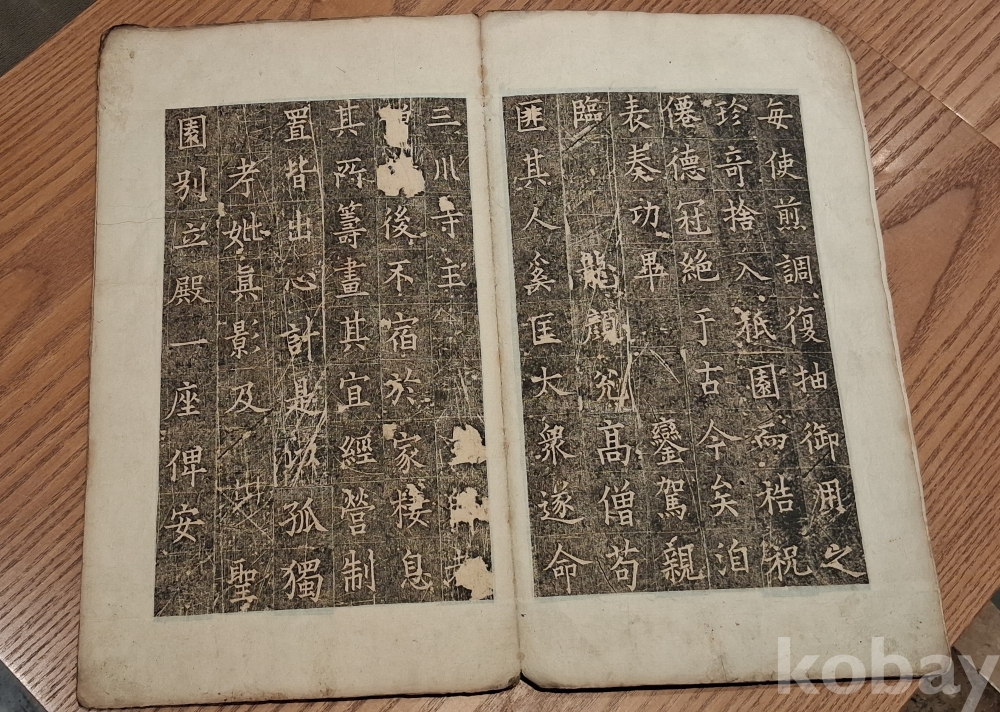 每使煎調復抽御用之
珍奇捨入祇園而祰祝
僊德冠絶于古今矣洎
表奏功畢 鑾駕親
臨 龍顔兊高僧苟
匪其人奚匡大衆遂命
三川寺主
後不宿於家棲息
其所籌畫其宜經營制
置皆出心計是以孤獨
考妣眞影及 聖
園別立殿一座俾安
kobay